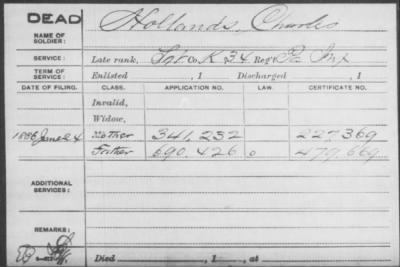 DEAD
NAME OF SOLDIER: Hollands, Charles
SERVICE: Late rank, Co. K 34 Reg't Pa Inf
TERM OF SERVICE: Enlisted , 1 Discharged , 1
DATE OF FILING. CLASS. APPLICATION NO. LAW. CERTIFICATE NO.
Invalid,
Widow,
Mother 341,232 227369
Father 690,426 479,669
ADDITIONAL SERVICES:
REMARKS:
Died , 1 , at